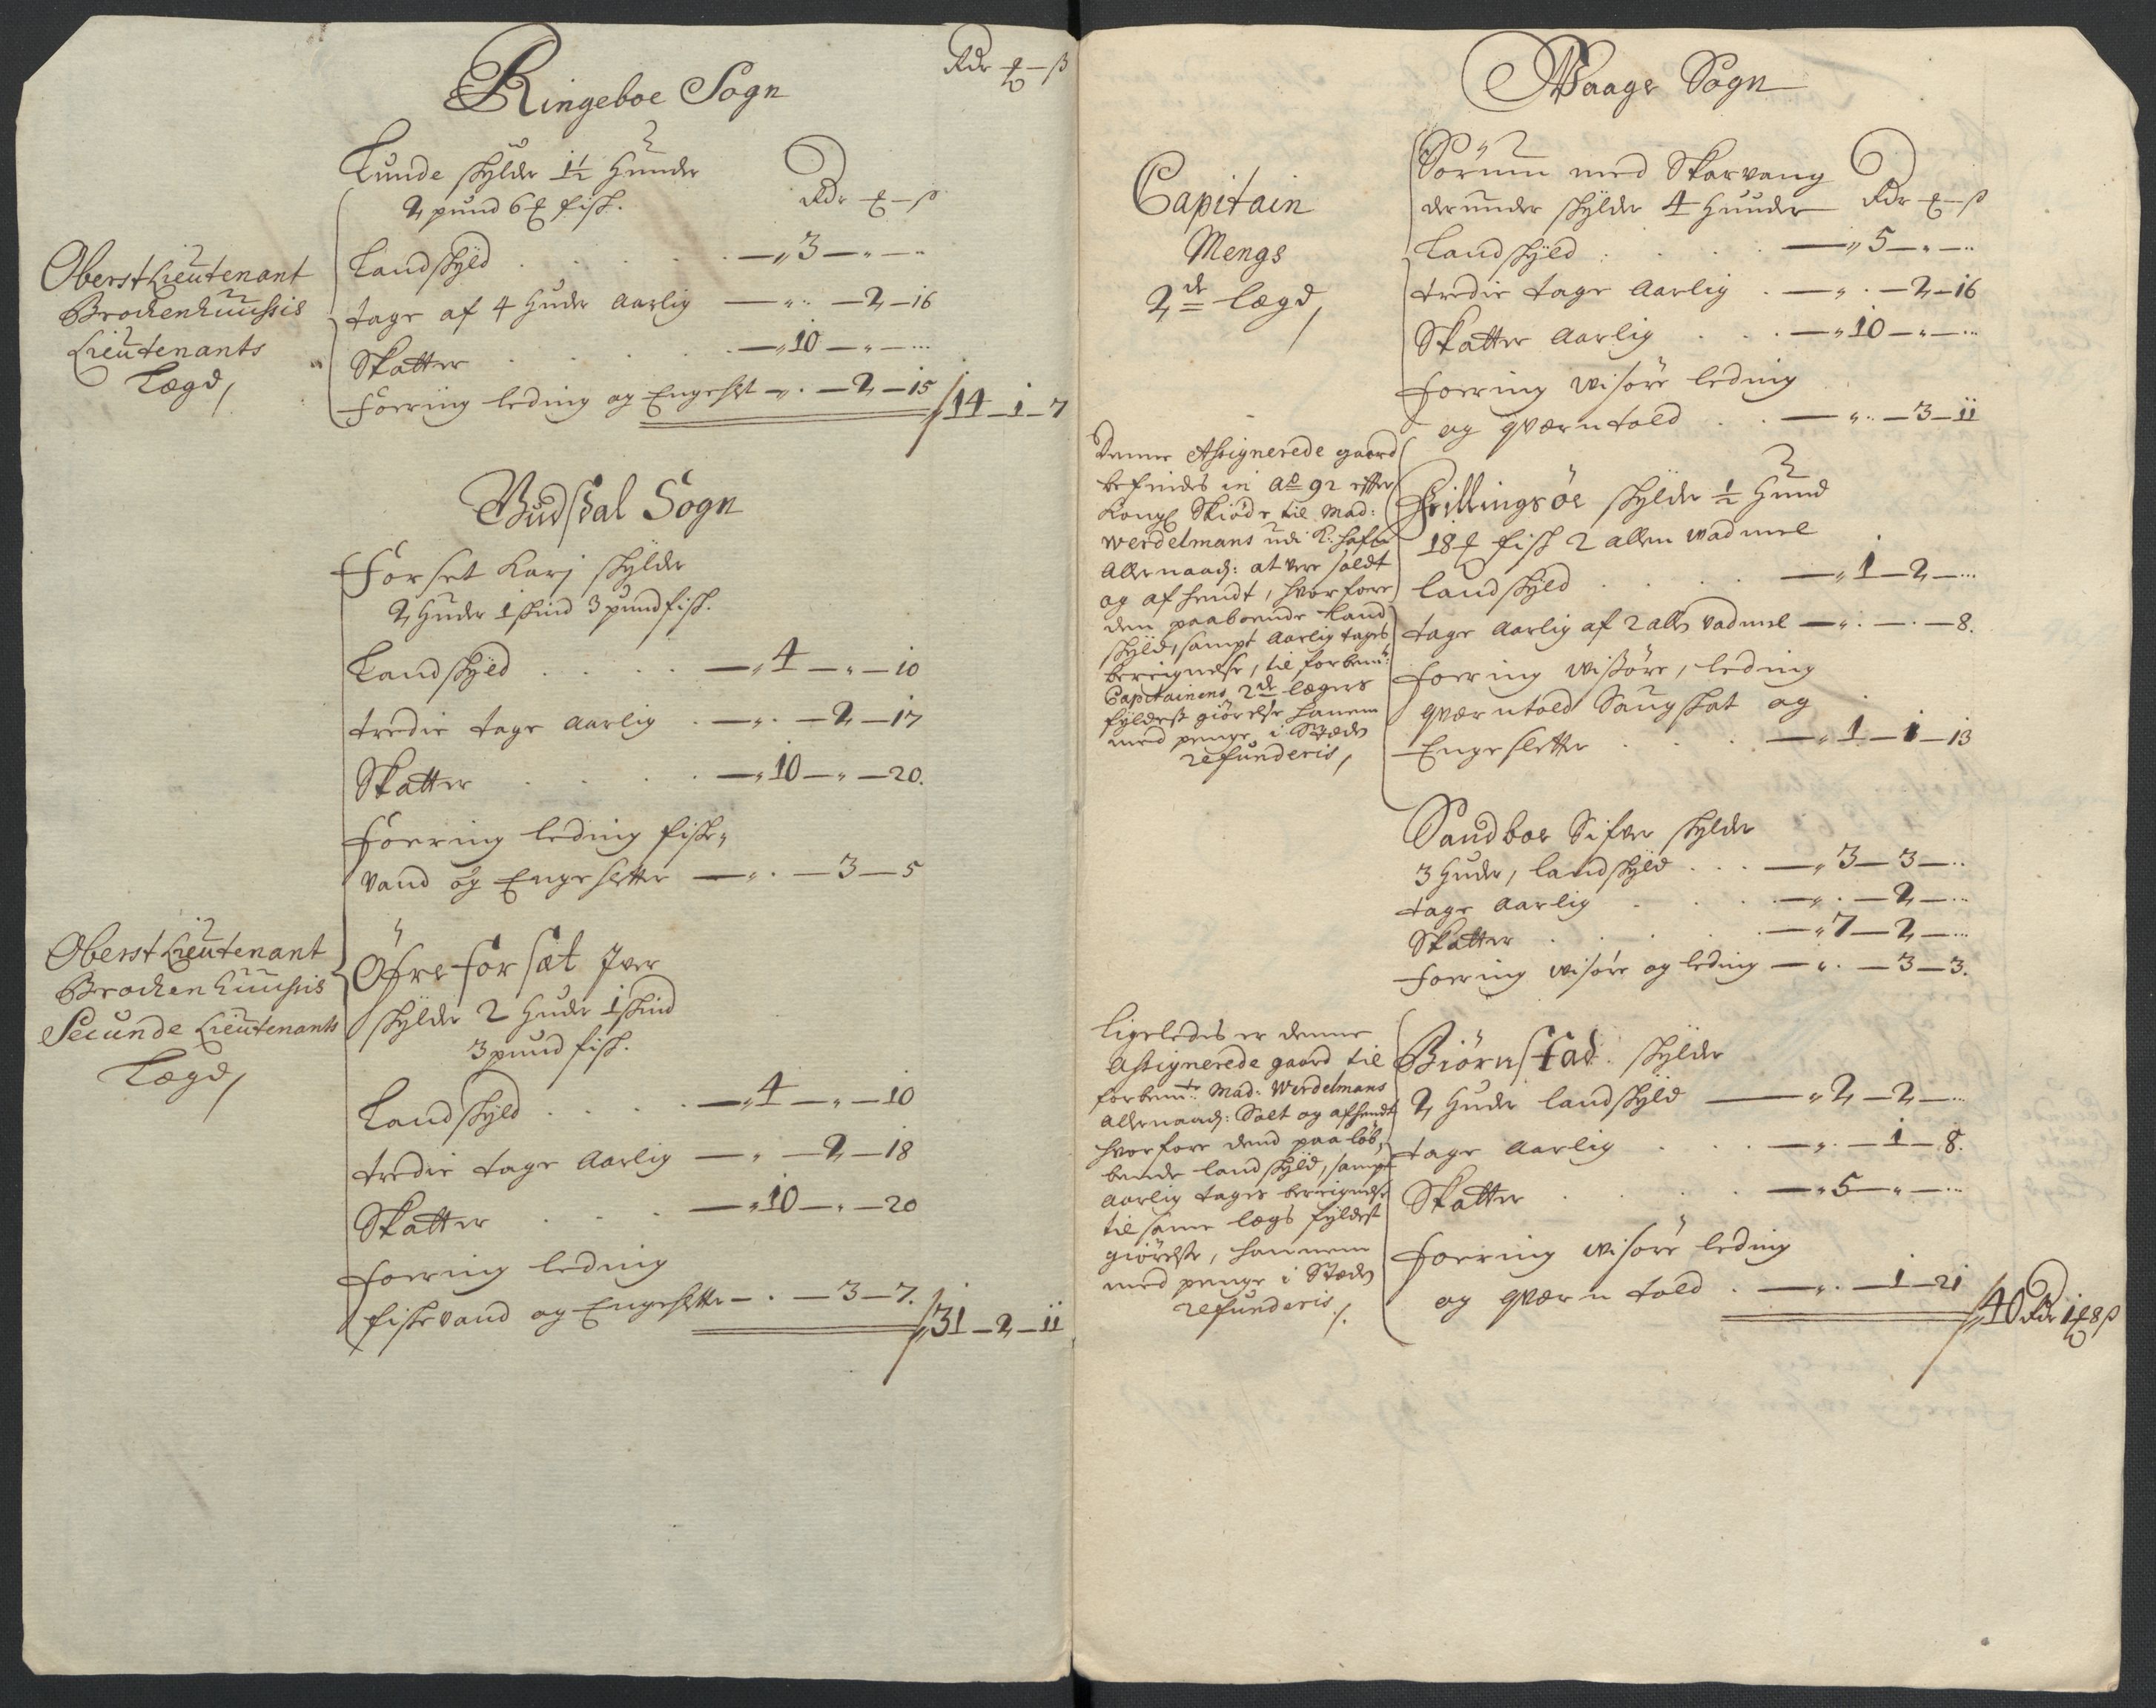 Rdr – ₰ – ß
Ringeboe Sogn
Lunde skylder 1½ Hunder
2 pund 6 ₰ fisk.
Rdr – ₰ – ß
Oberst Lieutenant
Brockenhuussis
Lieutenants
Lægd /
Landskyld . . . . — „ 3 — „ — „
tage af 4 Huder Aarlig — „ — 2 — 16
Skatter . . . . — „ 10 — „ — „
Foering leding og Engeslet — „ — 2 — 15
14 — 1 — 7
Budsdal Sogn
Forset Karj skylder
2 Huder 1 skind 3 pund fisk.
Landskyld . . . . — „ 4 — „ — 10
tredie tage Aarlig . — „ — 2 — 17
Skatter . . . . — „ 10 — „ — 20.
Foering leding fiske-
vand og Engesletter — „ — 3 — 5
Oberst Lieutenant
Brockenhuussis
Secunde Lieutenants
Lægd /
Öfre forsæt Iver
skylder 2 Huder 1 skind
3 pund fisk.
Landskyld . . . . — „ 4 — „ — 10
tredie tage Aarlig — „ — 2 — 18
Skatter . . . — „ 10 — „ — 20
Foering leding
fiskevand og Engesletter — „ — 3 — 7.
31 — 2 — 11
Waage Sogn
Capitain
Mengs
2de lægd /
Sörum med Skarvang
derunder skylder 4 Hunder
Rdr – ₰ – ß
Landskyld . . . — „ 5 — „ — „
tredie tage Aarlig . — „ — 2 — 16
Skatter Aarlig . . — „ 10 — „ — „
Foering wisöre leding
og qværntold . . — „ — 3 — 11
Denne Assignerede gaard
befindes in Ao 92 efter
Kongl Skiöde til Mad:
Werdelmans udi K:hafn
Allernaad: at vere soldt
og afhendt, hvorfore
den paaboende land
skyld, sampt Aarlig tages
bereignelse, til forbem:te
Capitainens 2de lægers
fyldest giörelse hanem
med penge i Stæden
refunderis /
Grillingsöe skylder ½ Hund
18 ₰ fisk 2 allen wadmel
landskyld . . . . — „ 1 — 2 — „
tage Aarlig af 2 allen vadmel — „ — „ — 8.
foering wissöre, leding
qværntold Saugskat og
Engesletter . . . — „ 1 — 1 — 13
Sandboe Sifver skylder
3 Huder, landskyld . . — „ 3 — 3 — „
tage Aarlig . . . — „ — 2 — „
Skatter . . . . — „ 7 — 2 — „
foering wisöre og leding — „ — 3 — 3.
ligeledes er denne
Assignerede gaard til
forbem:te Mad: Werdelmans
allernaad: Solt og afhendt
hvorfore dend paa löb,
bende landskyld, sampt
Aarlig tages bereignelse
til same lægs fyldest
giörelse, hannem
med penge i Stæden
refunderis /.
Biörnstad skylder
2 Huder landskyld — „ 2 — 2 — „
tage Aarlig . . . — „ — 1 — 8.
Skatter . . . . — „ 5 — „ — „
foering wisöre leding
og qværn told . — „ — 1 — 21
40 Rdr 1 ₰ 8 ß